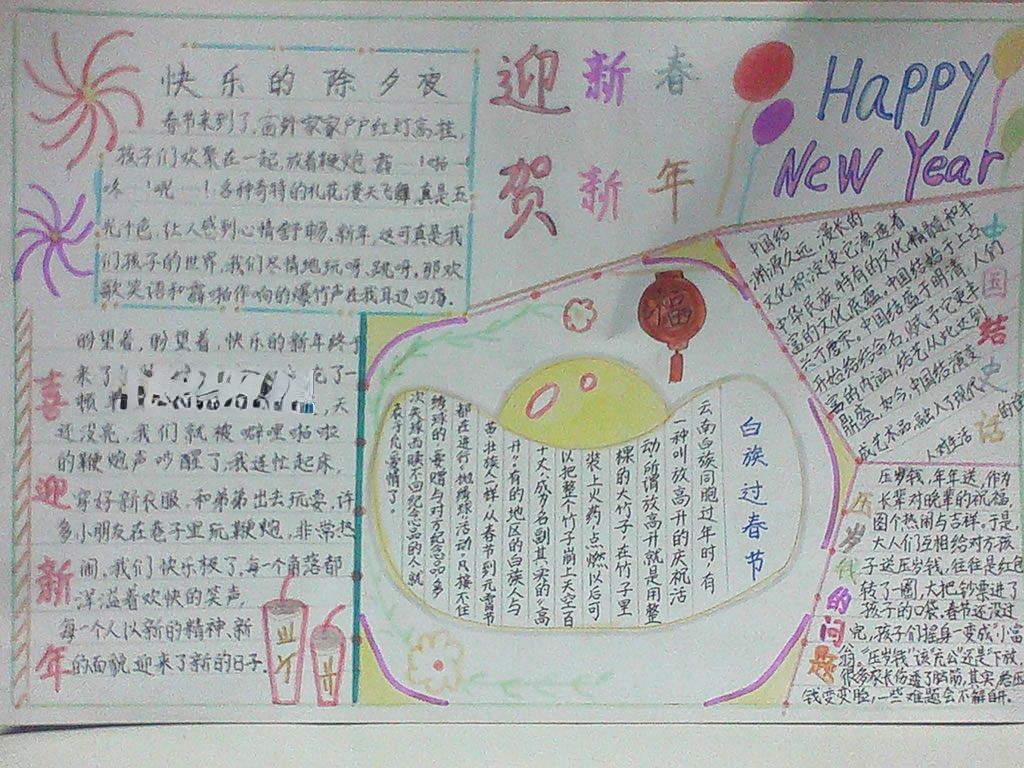 快乐的除夕夜
春节来到了,窗外家家户户红灯高挂,
孩子们欢聚在一起,放着鞭炮
各种奇特的礼花漫天飞舞,真是五
光十色,让人感到心情舒畅。新年,这可真是我
们孩子的世界,我们尽情地玩呀,跳呀,那欢
歌笑语和霹啪作响的爆竹声在我耳边回荡。
迎新春
贺新年
Happy
New Year
喜迎新年
盼望着,盼望着,快乐的新年终于
来了
,天
还没亮,我们就被噼哩啪啦
的鞭炮声吵醒了,我连忙起床,
穿好新衣服,和弟弟出去玩耍,许
多小朋友在巷子里玩鞭炮,非常热
闹,我们快乐极了,每一个角落都
洋溢着欢快的笑声,
每一个人以新的精神、新
的面貌迎来了新的日子.
福
白族过春节
云南白族同胞过年时,有
一种叫放高升的庆祝活
动,所谓放高升就是用整
棵的大竹子,在竹子里
装上火药,点燃以后可
以把整个竹子崩上天空百
十丈,成为名副其实的“高
升”。有的地区的白族人与
苗、壮族人一样,从春节到元宵节
都在进行“抛绣球”活动。凡接不住
绣球的,要赠与对方纪念品。多
次失球而赎不回纪念品的人,就
表示凡爱情了。
中国结史话
中国结
渊源久远,漫长的
文化积淀使它渗透着
中华民族特有的文化精髓和丰
富的文化底蕴。中国结始于上古,
兴于唐宋。中国结盛于明清,人们
开始给结命名,赋予它更丰
富的内涵,结艺从此达到
鼎盛。如今,中国结演变
成艺术品,融入了现代
人对生活
压岁钱的问题
压岁钱,年年送,作为
长辈对晚辈的祝福,
图个热闹与吉祥。于是,
大人们互相给对方孩
子送压岁钱,往往是红包
转了一圈,大把钞票进了
孩子的口袋,春节还没过
完,孩子们摇身一变成“小富
翁。“压岁钱”该“充公”还是“下放,
很多家长伤透了脑筋,其实,给压
钱变变脸,一些难题会不解自开。